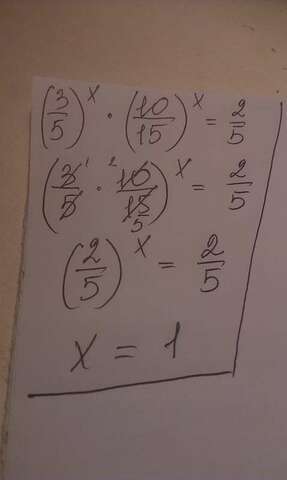 (3/5)^x · (10/15)^x = 2/5
(3̸ 1/5̸ · 2 1̸0̸/1̸5̸ 5)^x = 2/5
(2/5)^x = 2/5
x = 1